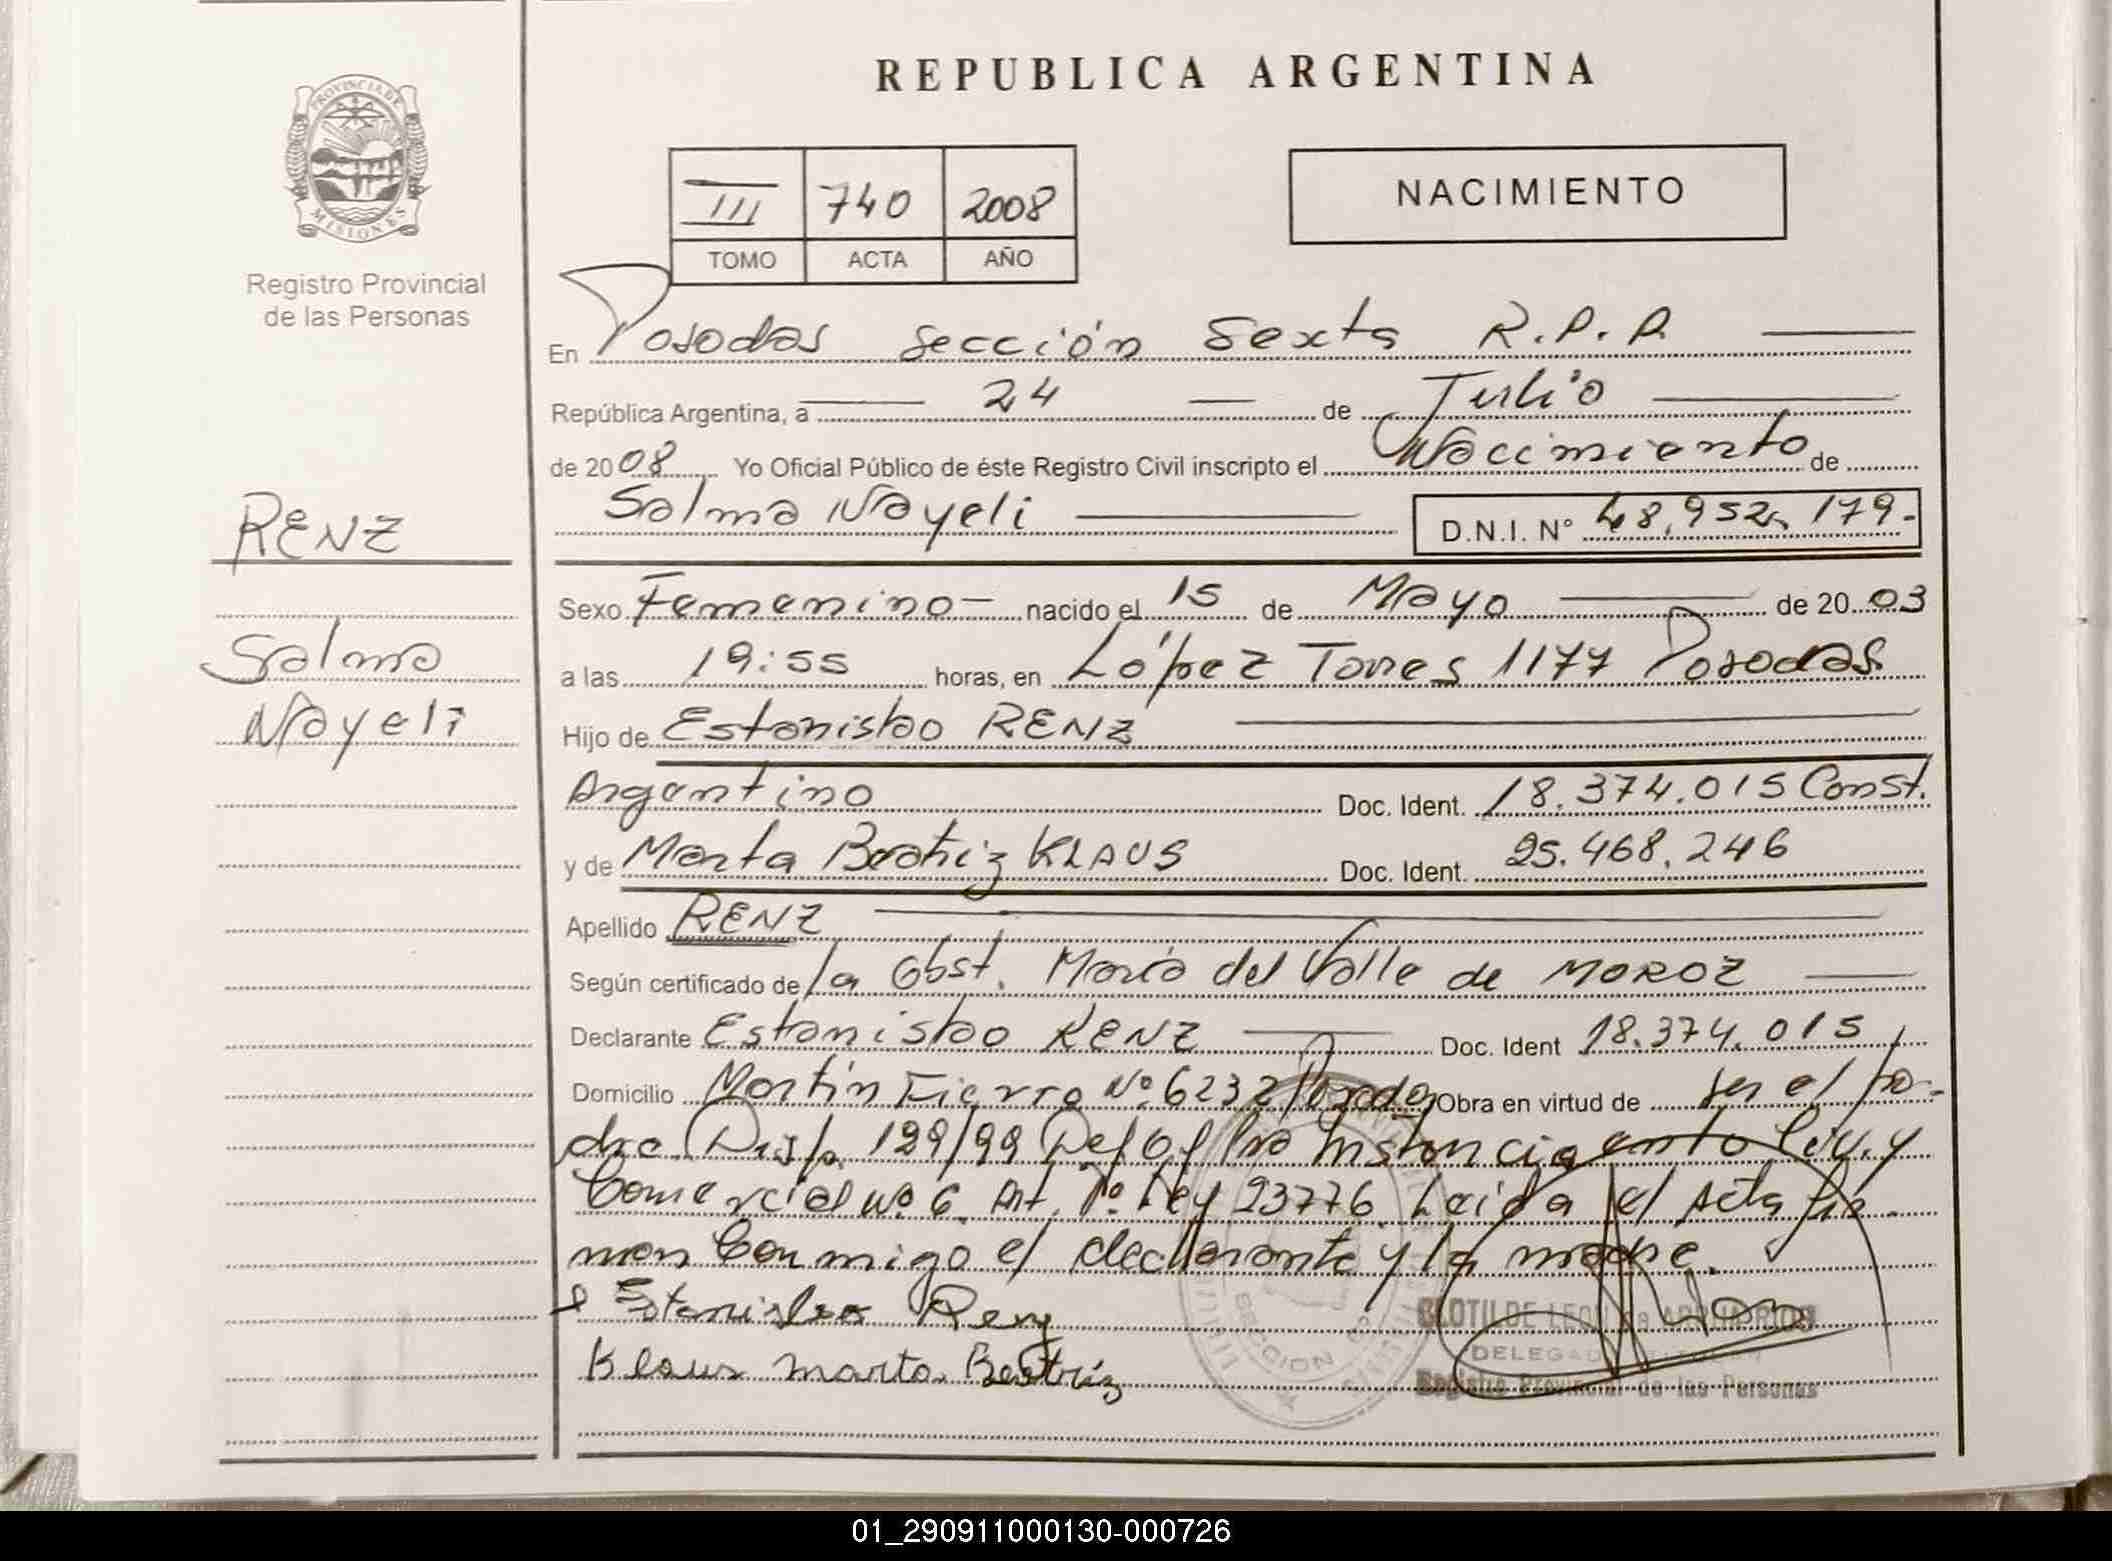 REPUBLICA ARGENTINA
PROVINCIA DE
MISIONES
Registro Provincial
de las Personas
III 740 2008
TOMO ACTA AÑO
NACIMIENTO
En Posadas Sección Sexta R.P.P.
República Argentina, a 24 de Julio
de 2008 Yo Oficial Público de éste Registro Civil inscripto el Nacimiento de
Salma Nayeli D.N.I. N° 48.952.179.-
RENZ
Salma
Nayeli
Sexo Femenino- nacido el 15 de Mayo de 2003
a las 19:55 horas, en López Torres 1177 Posadas
Hijo de Estanislao RENZ
Argentino Doc. Ident. 18.374.015 Const.
y de Marta Beatriz KLAUS Doc. Ident. 25.468.246
Apellido RENZ
Según certificado de la Obst. María del Valle de MOROZ
Declarante Estanislao RENZ Doc. Ident 18.374.015
Domicilio Martín Fierro Nº 6232 Posadas Obra en virtud de ser el pa-
dre. Disp. 129/99 Def Of 1ra Instancia Civ. y
Comercial Nº 6. Art. 1º Ley 23776. Leida el Acta fir-
man Conmigo el declarante y la madre.
Estanislao Renz
Klaus Marta Beatriz
SECCION
CLOTILDE LEON de
DELEGADA TITULAR
Registro Provincial de las Personas
01_290911000130-000726